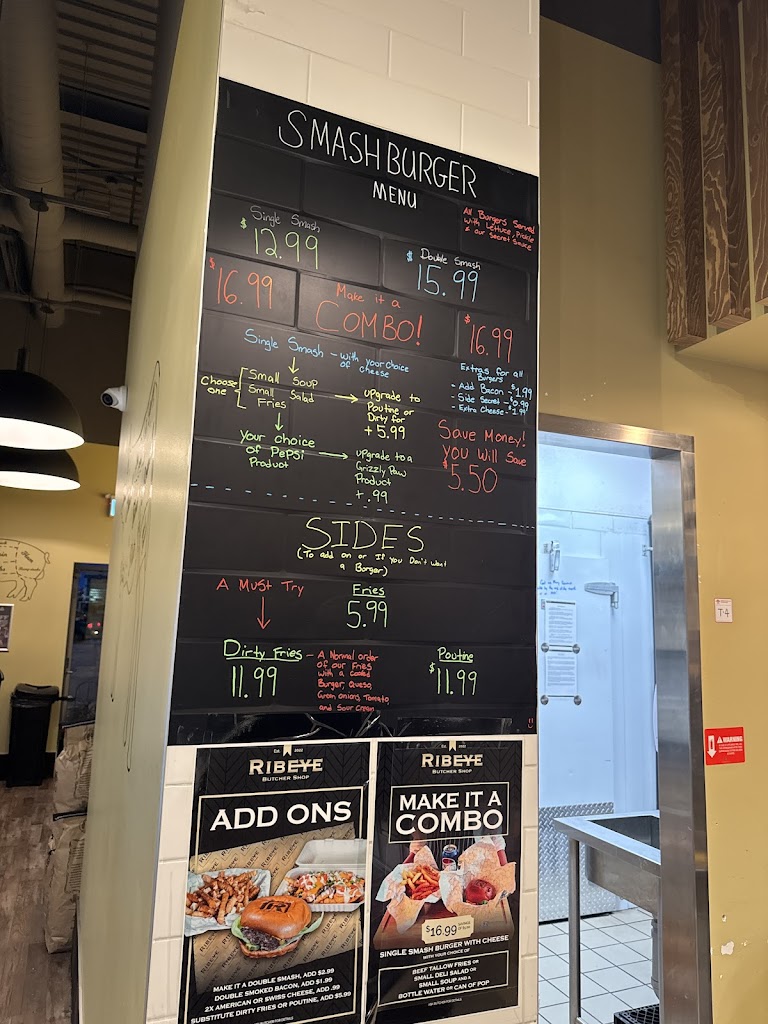 SMASH BURGER
MENU
All Burgers Served
with Lettuce, Pickle
& our Secret Sauce
Single Smash
$12.99
$ Double Smash
15.99
$16.99
Make it a
COMBO!
$16.99
Single Smash - with your choice
of cheese
Choose
one
Small Soup
Small Salad
Fries
upgrade to
Poutine or
Dirty for
+5.99
Your choice
of Pepsi
Product
upgrade to a
Grizzly Paw
Product
+.99
Extras for all
Burgers
- Add Bacon - $1.99
- Side Secret - $0.99
- Extra Cheese - $1.99
Save Money!
you Will Save
$5.50
SIDES
(To add on or If you Don't want
a Borger)
A Must Try
Fries
5.99
Dirty Fries - A Normal order
of our Fries
with a cooked
Burger, Queso,
Green onions, Tomato
and Sour Cream
11.99
Poutine
$11.99
Est. 2022
RIBEYE
BUTCHER SHOP
ADD ONS
MAKE IT A DOUBLE SMASH, ADD $2.99
DOUBLE SMOKED BACON, ADD $1.99
2X AMERICAN OR SWISS CHEESE, ADD .99
SUBSTITUTE DIRTY FRIES OR POUTINE, ADD $5.99
RIBEYE
BUTCHER SHOP
MAKE IT A
COMBO
$16.99
SINGLE SMASH BURGER WITH CHEESE
WITH YOUR CHOICE OF
BEEF TALLOW FRIES OR
SMALL DELI SALAD OR
SMALL SOUP AND A
BOTTLE WATER OR CAN OF POP
T-4
WARNING